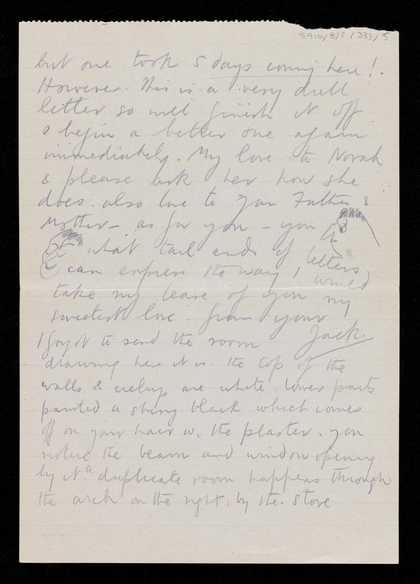 but one took 5 days coming here!.
However. This is a very dull
letter so will finish it off
& begin a better one again
immediately. My love to Norah
& please ask her how she
does. also love to your Father &
Mother – as for you – you
what tail ends of letters
can express the way I would
take my leave of you my
sweetest love. from your
Jack
I forgot to send the room
drawing here it is. the top of the
walls & ceiling are white. lower parts
painted a shiny black which comes
off on your hair w. the plaster. you
notice the beam and window opening
by it a duplicate room happens through
the arch on the right, by the stove